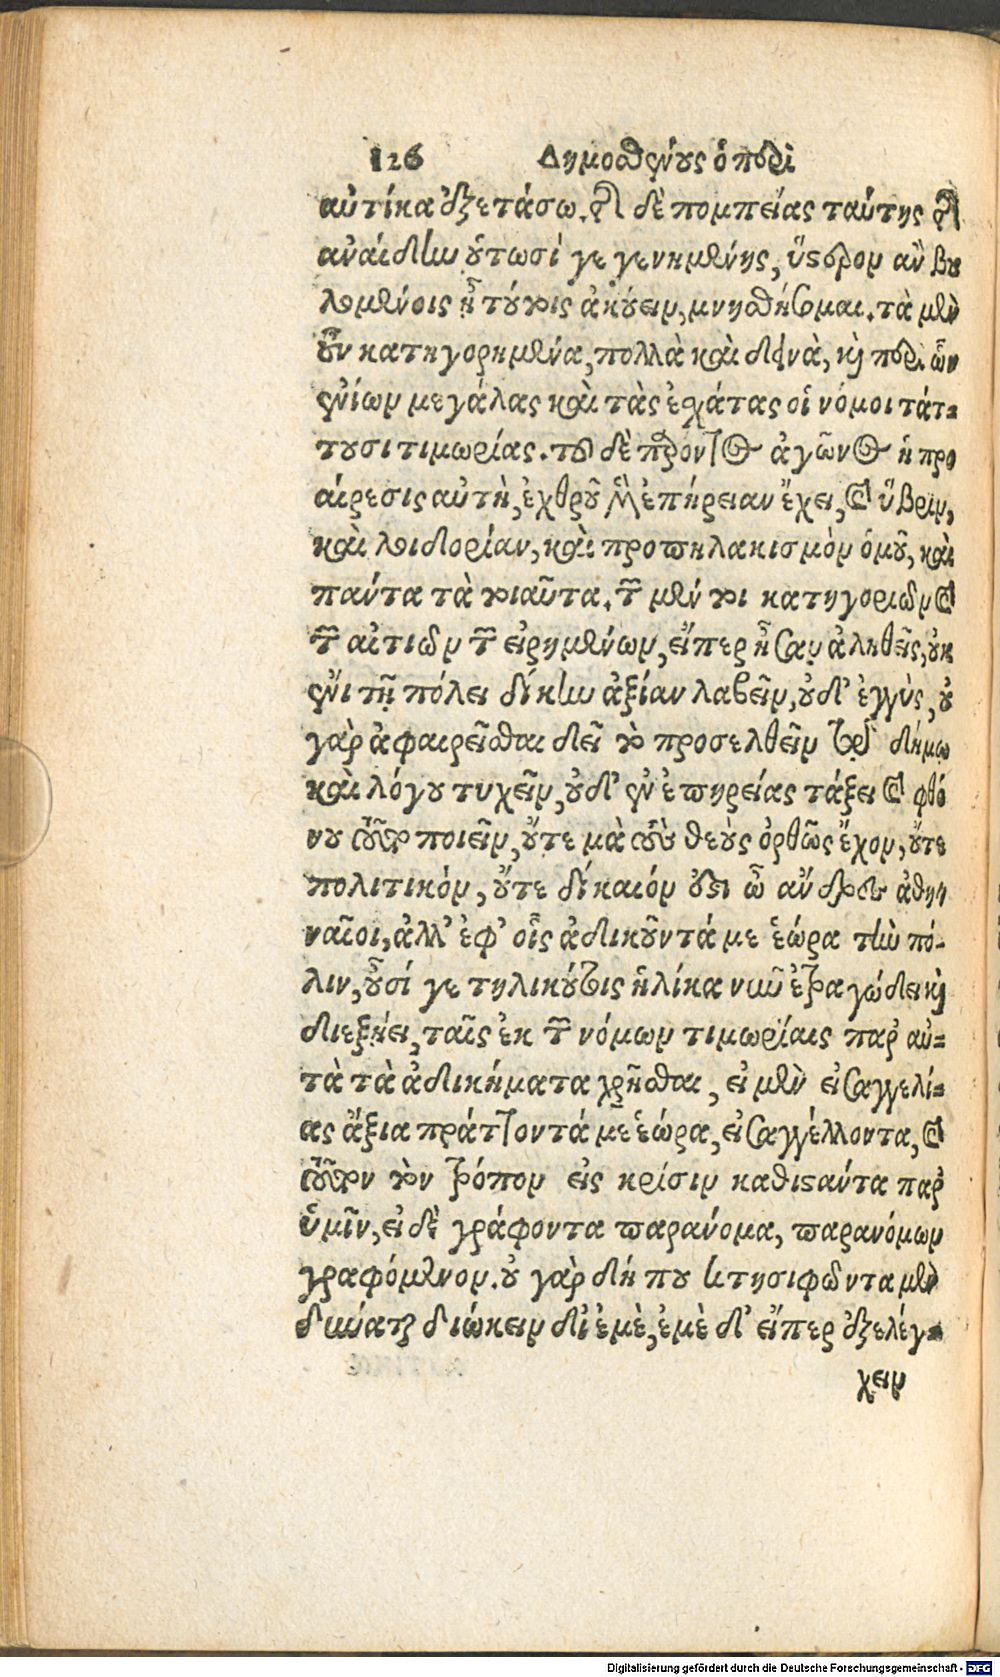 126 Δημοσθένους ὁ περὶ
αὐτίκα ἐξετάσω. τῆς δὲ πομπείας ταύτης τῆς
ἀναίδην οὑτωσὶ γεγενημένης, ὕστερον ἂν βου
λομένοις ᾖ τούτοις ἀκούειν, μνησθήσομαι. τὰ μὲν
οὖν κατηγορημένα, πολλὰ καὶ δεινὰ, καὶ περὶ ὧν
ἐνίων μεγάλας καὶ τὰς ἐσχάτας οἱ νόμοι τάτ-
τουσι τιμωρίας. τοῦ δὲ παρόντος ἀγῶνος ἡ προ
αίρεσις αὐτὴ, ἐχθροῦ μὲν ἐπήρειαν ἔχει, καὶ ὕβριν,
καὶ λοιδορίαν, καὶ προπηλακισμὸν ὁμοῦ, καὶ
πάντα τὰ τοιαῦτα. τῶν μέν τοι κατηγοριῶν καὶ
τῶν αἰτιῶν τῶν εἰρημένων, εἴπερ ἦσαν ἀληθεῖς, οὐκ
ἔνι τῇ πόλει δίκην ἀξίαν λαβεῖν, οὐδ' ἐγγὺς, οὐ
γὰρ ἀφαιρεῖσθαι δεῖ τὸ προσελθεῖν τῷ δήμῳ
καὶ λόγου τυχεῖν, οὐδ' ἐν ἐπηρείας τάξει καὶ φθό
νου τοῦτο ποιεῖν, οὔτε μὰ τοὺς θεοὺς ὀρθῶς ἔχον, οὔτε
πολιτικόν, οὔτε δίκαιόν ἐστι ὦ ἄνδρες ἀθη
ναῖοι, ἀλλ' ἐφ' οἷς ἀδικοῦντά με ἑώρα τὴν πό-
λιν, οὖσί γε τηλικούτοις ἡλίκα νῦν ἐτραγώδει καὶ
διεξῄει, ταῖς ἐκ τῶν νόμων τιμωρίαις παρ' αὐ-
τὰ τὰ ἀδικήματα χρῆσθαι, εἰ μὲν εἰσαγγελί-
ας ἄξια πράττοντά με ἑώρα, εἰσαγγέλλοντα, καὶ
τοῦτον τὸν τρόπον εἰς κρίσιν καθιστάντα παρ'
ὑμῖν, εἰ δὲ γράφοντα παράνομα, παρανόμων
γραφόμενον. οὐ γὰρ δή που κτησιφῶντα μὲν
δύναται διώκειν δι' ἐμὲ, ἐμὲ δ' εἴπερ ἐξελέγ-
χειν
Digitalisierung gefördert durch die Deutsche Forschungsgemeinschaft - DFG